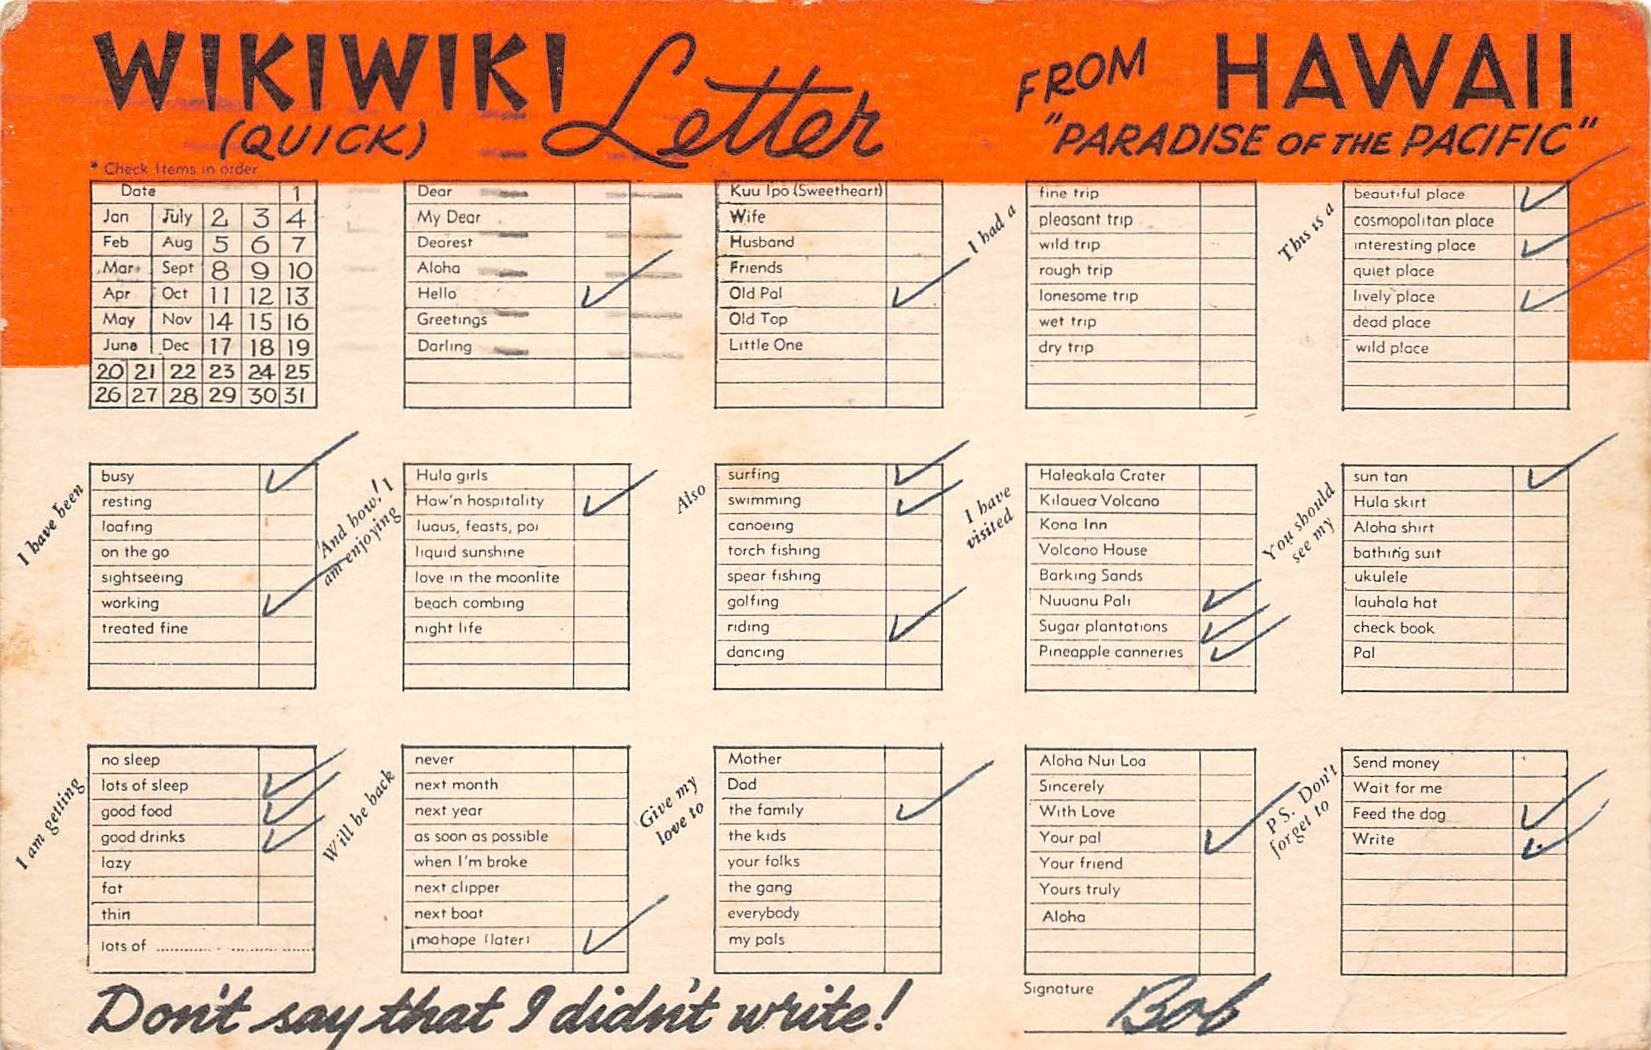 WIKIWIKI Letter FROM HAWAII
(QUICK) "PARADISE OF THE PACIFIC"
* Check Items in order
Date 1
Jan July 2 3 4
Feb Aug 5 6 7
Mar Sept 8 9 10
Apr Oct 11 12 13
May Nov 14 15 16
June Dec 17 18 19
20 21 22 23 24 25
26 27 28 29 30 31
Dear
My Dear
Dearest
Aloha
Hello ✓
Greetings
Darling
Kuu Ipo (Sweetheart)
Wife
Husband
Friends
Old Pal ✓
Old Top
Little One
I had a
fine trip
pleasant trip
wild trip
rough trip
lonesome trip
wet trip
dry trip
This is a
beautiful place ✓
cosmopolitan place
interesting place ✓
quiet place
lively place ✓
dead place
wild place
I have been
busy ✓
resting
loafing
on the go
sightseeing
working ✓
treated fine
And how! I
am enjoying
Hula girls
Haw'n hospitality ✓
luaus, feasts, poi
liquid sunshine
love in the moonlite
beach combing
night life
Also
surfing ✓
swimming ✓
canoeing
torch fishing
spear fishing
golfing
riding ✓
dancing
I have
visited
Haleakala Crater
Kilauea Volcano
Kona Inn
Volcano House
Barking Sands
Nuuanu Pali ✓
Sugar plantations ✓
Pineapple canneries ✓
You should
see my
sun tan ✓
Hula skirt
Aloha shirt
bathing suit
ukulele
lauhala hat
check book
Pal
I am getting
no sleep
lots of sleep ✓
good food ✓
good drinks ✓
lazy
fat
thin
lots of ........................
Will be back
never
next month
next year
as soon as possible
when I'm broke
next clipper
next boat
mahope (later) ✓
Give my
love to
Mother
Dad
the family ✓
the kids
your folks
the gang
everybody
my pals
Aloha Nui Loa
Sincerely
With Love
Your pal ✓
Your friend
Yours truly
Aloha
P.S. Don't
forget to
Send money
Wait for me
Feed the dog ✓
Write ✓
Don't say that I didn't write!
Signature Bob